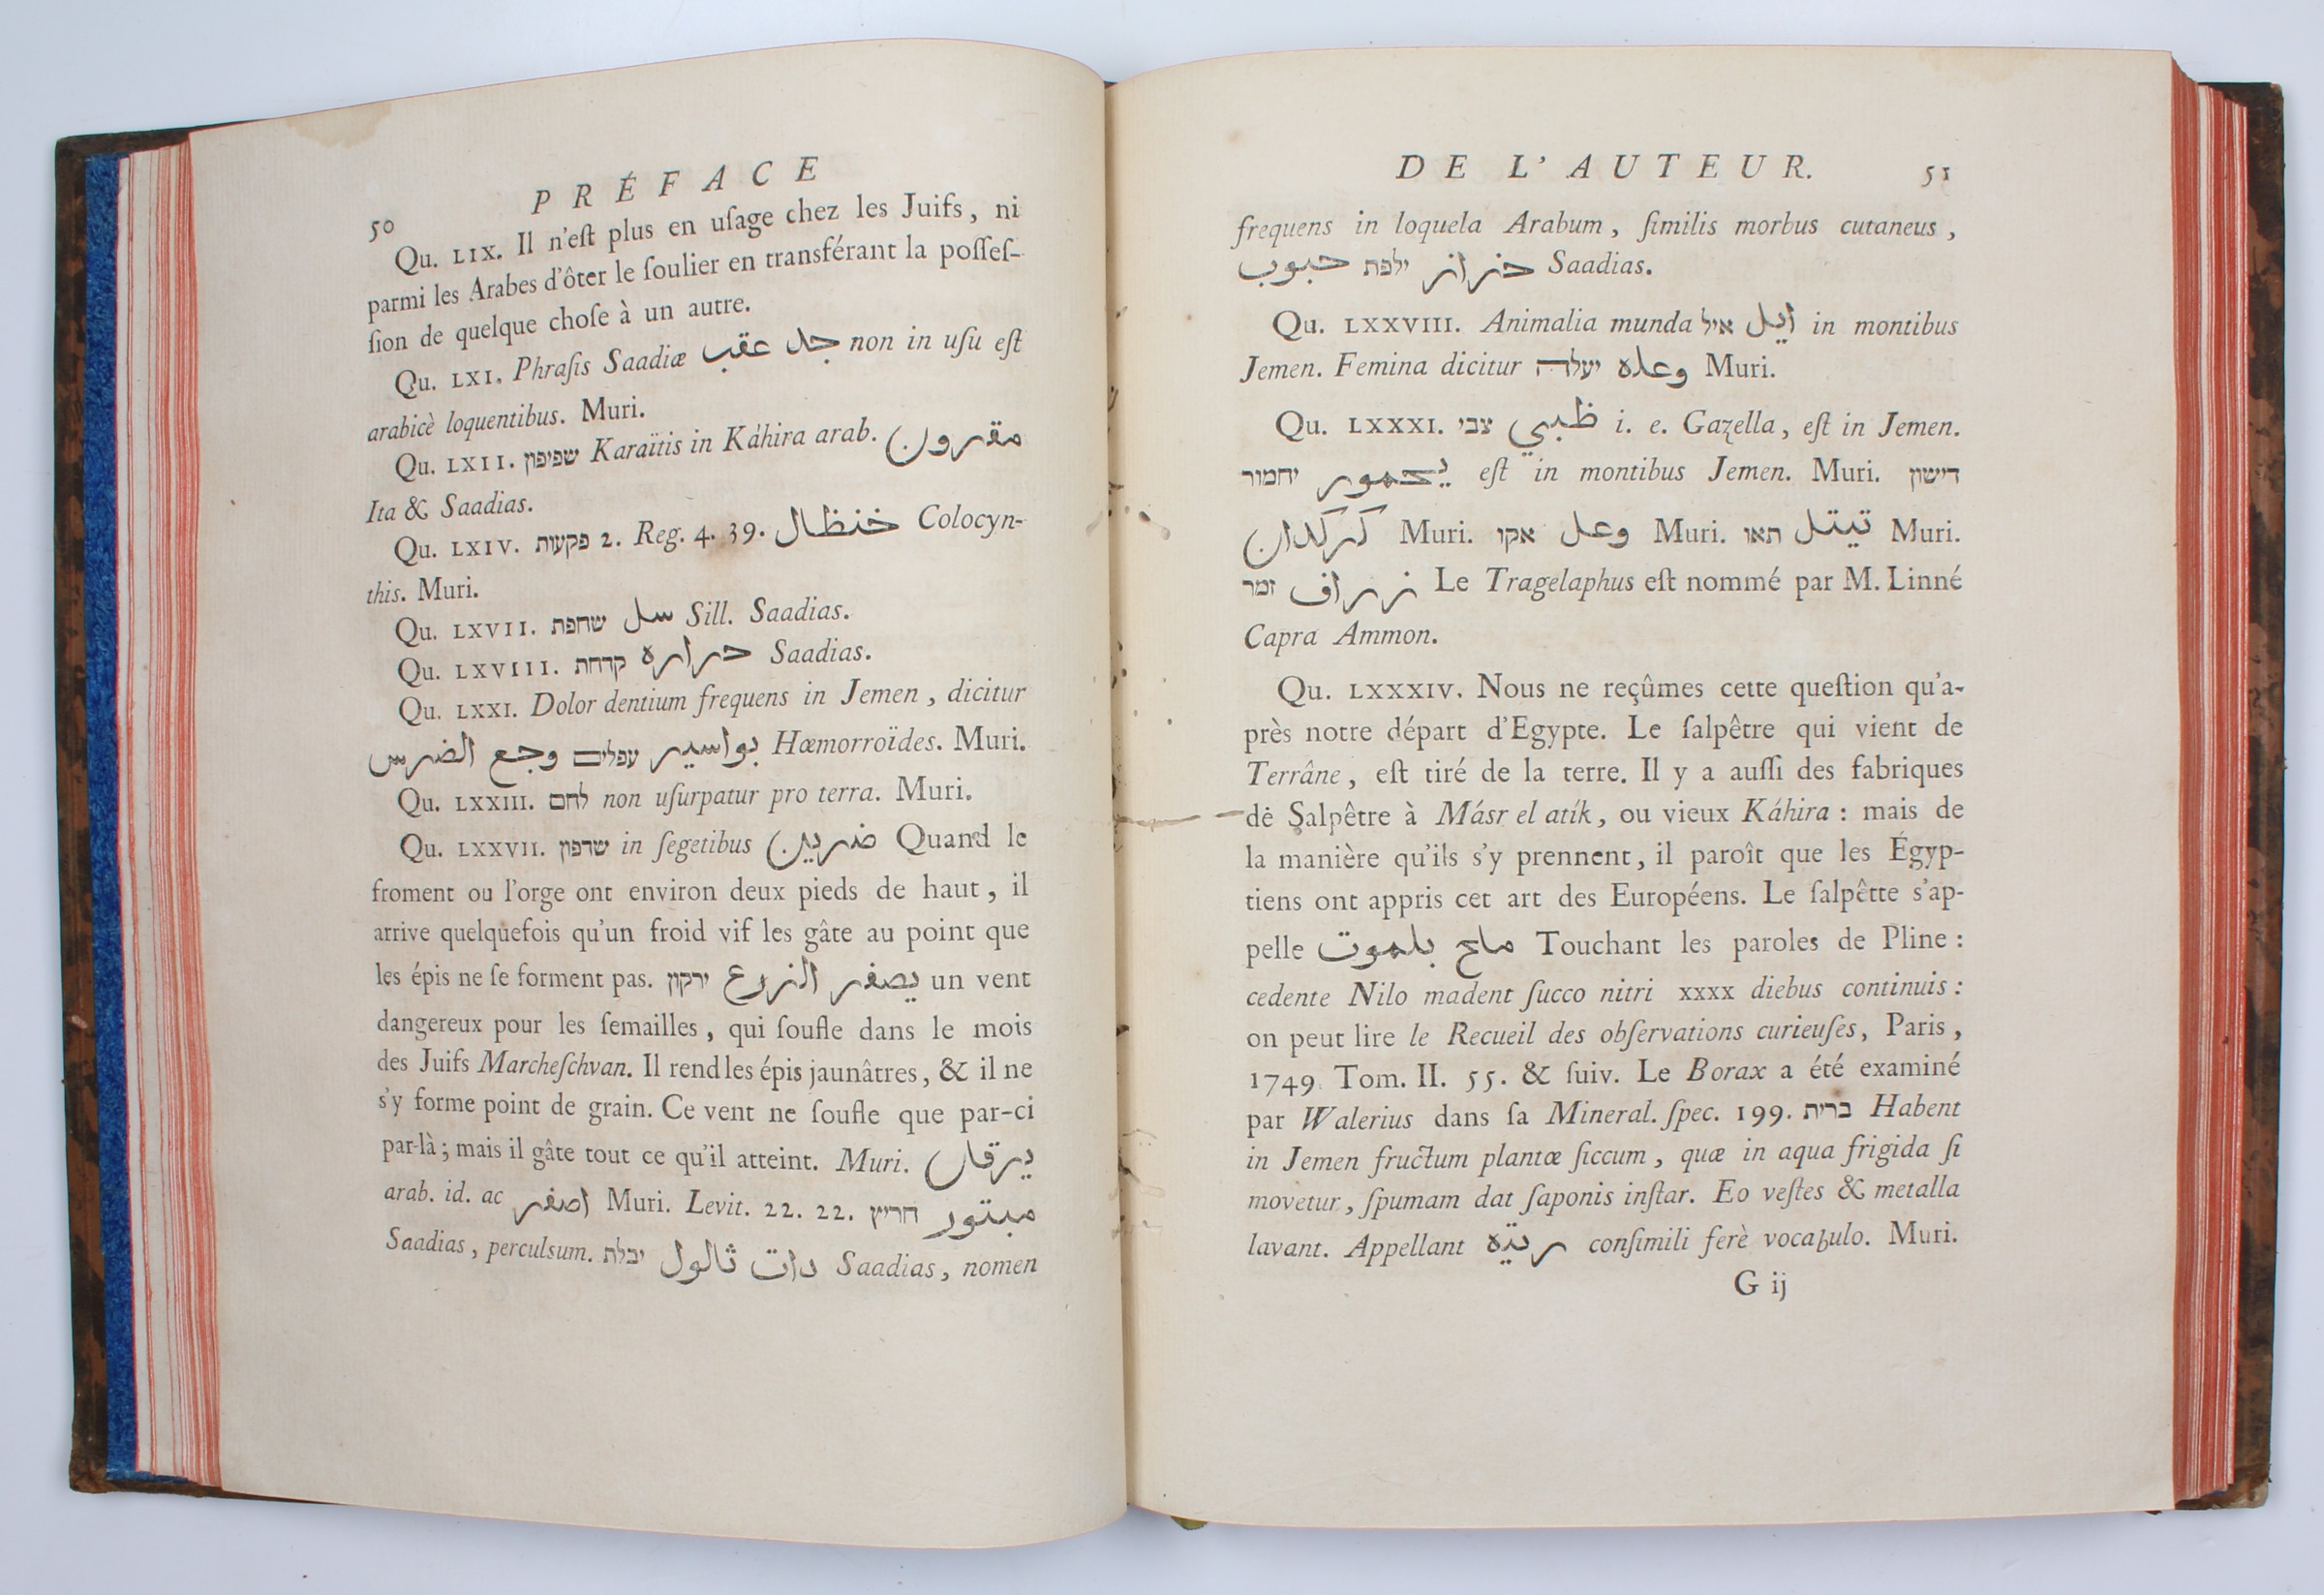 50 PRÉFACE
Qu. LIX. Il n'eſt plus en uſage chez les Juifs, ni
parmi les Arabes d'ôter le ſoulier en transférant la poſſeſ-
ſion de quelque choſe à un autre.
Qu. LXI. Phraſis Saadiæ جل عقب non in uſu eſt
arabicè loquentibus. Muri.
Qu. LXII. שפיפון Karaïtis in Káhira arab. مقرون
Ita & Saadias.
Qu. LXIV. פקעות 2. Reg. 4. 39. خنظال Colocyn-
this. Muri.
Qu. LXVII. שחפת سل Sill. Saadias.
Qu. LXVIII. קדחת حراره Saadias.
Qu. LXXI. Dolor dentium frequens in Jemen, dicitur
وجع الضرس עפלים بواسير Hæmorroïdes. Muri.
Qu. LXXIII. לחם non uſurpatur pro terra. Muri.
Qu. LXXVII. שדפון in ſegetibus ضربين Quand le
froment ou l'orge ont environ deux pieds de haut, il
arrive quelquefois qu'un froid vif les gâte au point que
les épis ne ſe forment pas. ירקון يصفر الزرع un vent
dangereux pour les ſemailles, qui ſoufle dans le mois
des Juifs Marcheſchvan. Il rend les épis jaunâtres, & il ne
s'y forme point de grain. Ce vent ne ſoufle que par-ci
par-là; mais il gâte tout ce qu'il atteint. Muri. يرقان
arab. id. ac اصفر Muri. Levit. 22. 22. חריץ مبتور
Saadias, perculsum. יבלת دات ثالول Saadias, nomen
DE L'AUTEUR. 51
frequens in loquela Arabum, ſimilis morbus cutaneus,
حبوب ילפת حزاز Saadias.
Qu. LXXVIII. Animalia munda איל ايل in montibus
Jemen. Femina dicitur יעלה وعله Muri.
Qu. LXXXI. צבי ظبي i. e. Gazella, eſt in Jemen.
יחמור يحمور eſt in montibus Jemen. Muri. דישון
كركدان Muri. אקו وعل Muri. תאו تيتل Muri.
זמר زراف Le Tragelaphus eſt nommé par M. Linné
Capra Ammon.
Qu. LXXXIV. Nous ne reçûmes cette queſtion qu'a-
près notre départ d'Egypte. Le ſalpêtre qui vient de
Terrâne, eſt tiré de la terre. Il y a auſſi des fabriques
de Salpêtre à Másr el atík, ou vieux Káhira: mais de
la manière qu'ils s'y prennent, il paroît que les Égyp-
tiens ont appris cet art des Européens. Le ſalpêtte s'ap-
pelle ملح بلموت Touchant les paroles de Pline:
cedente Nilo madent ſucco nitri XXXX diebus continuis:
on peut lire le Recueil des obſervations curieuſes, Paris,
1749. Tom. II. 55. & ſuiv. Le Borax a été examiné
par Walerius dans ſa Mineral. ſpec. 199. ברית Habent
in Jemen fructum plantæ ſiccum, quæ in aqua frigida ſi
movetur, ſpumam dat ſaponis inſtar. Eo veſtes & metalla
lavant. Appellant رتيه conſimili ferè vocabulo. Muri.
G ij